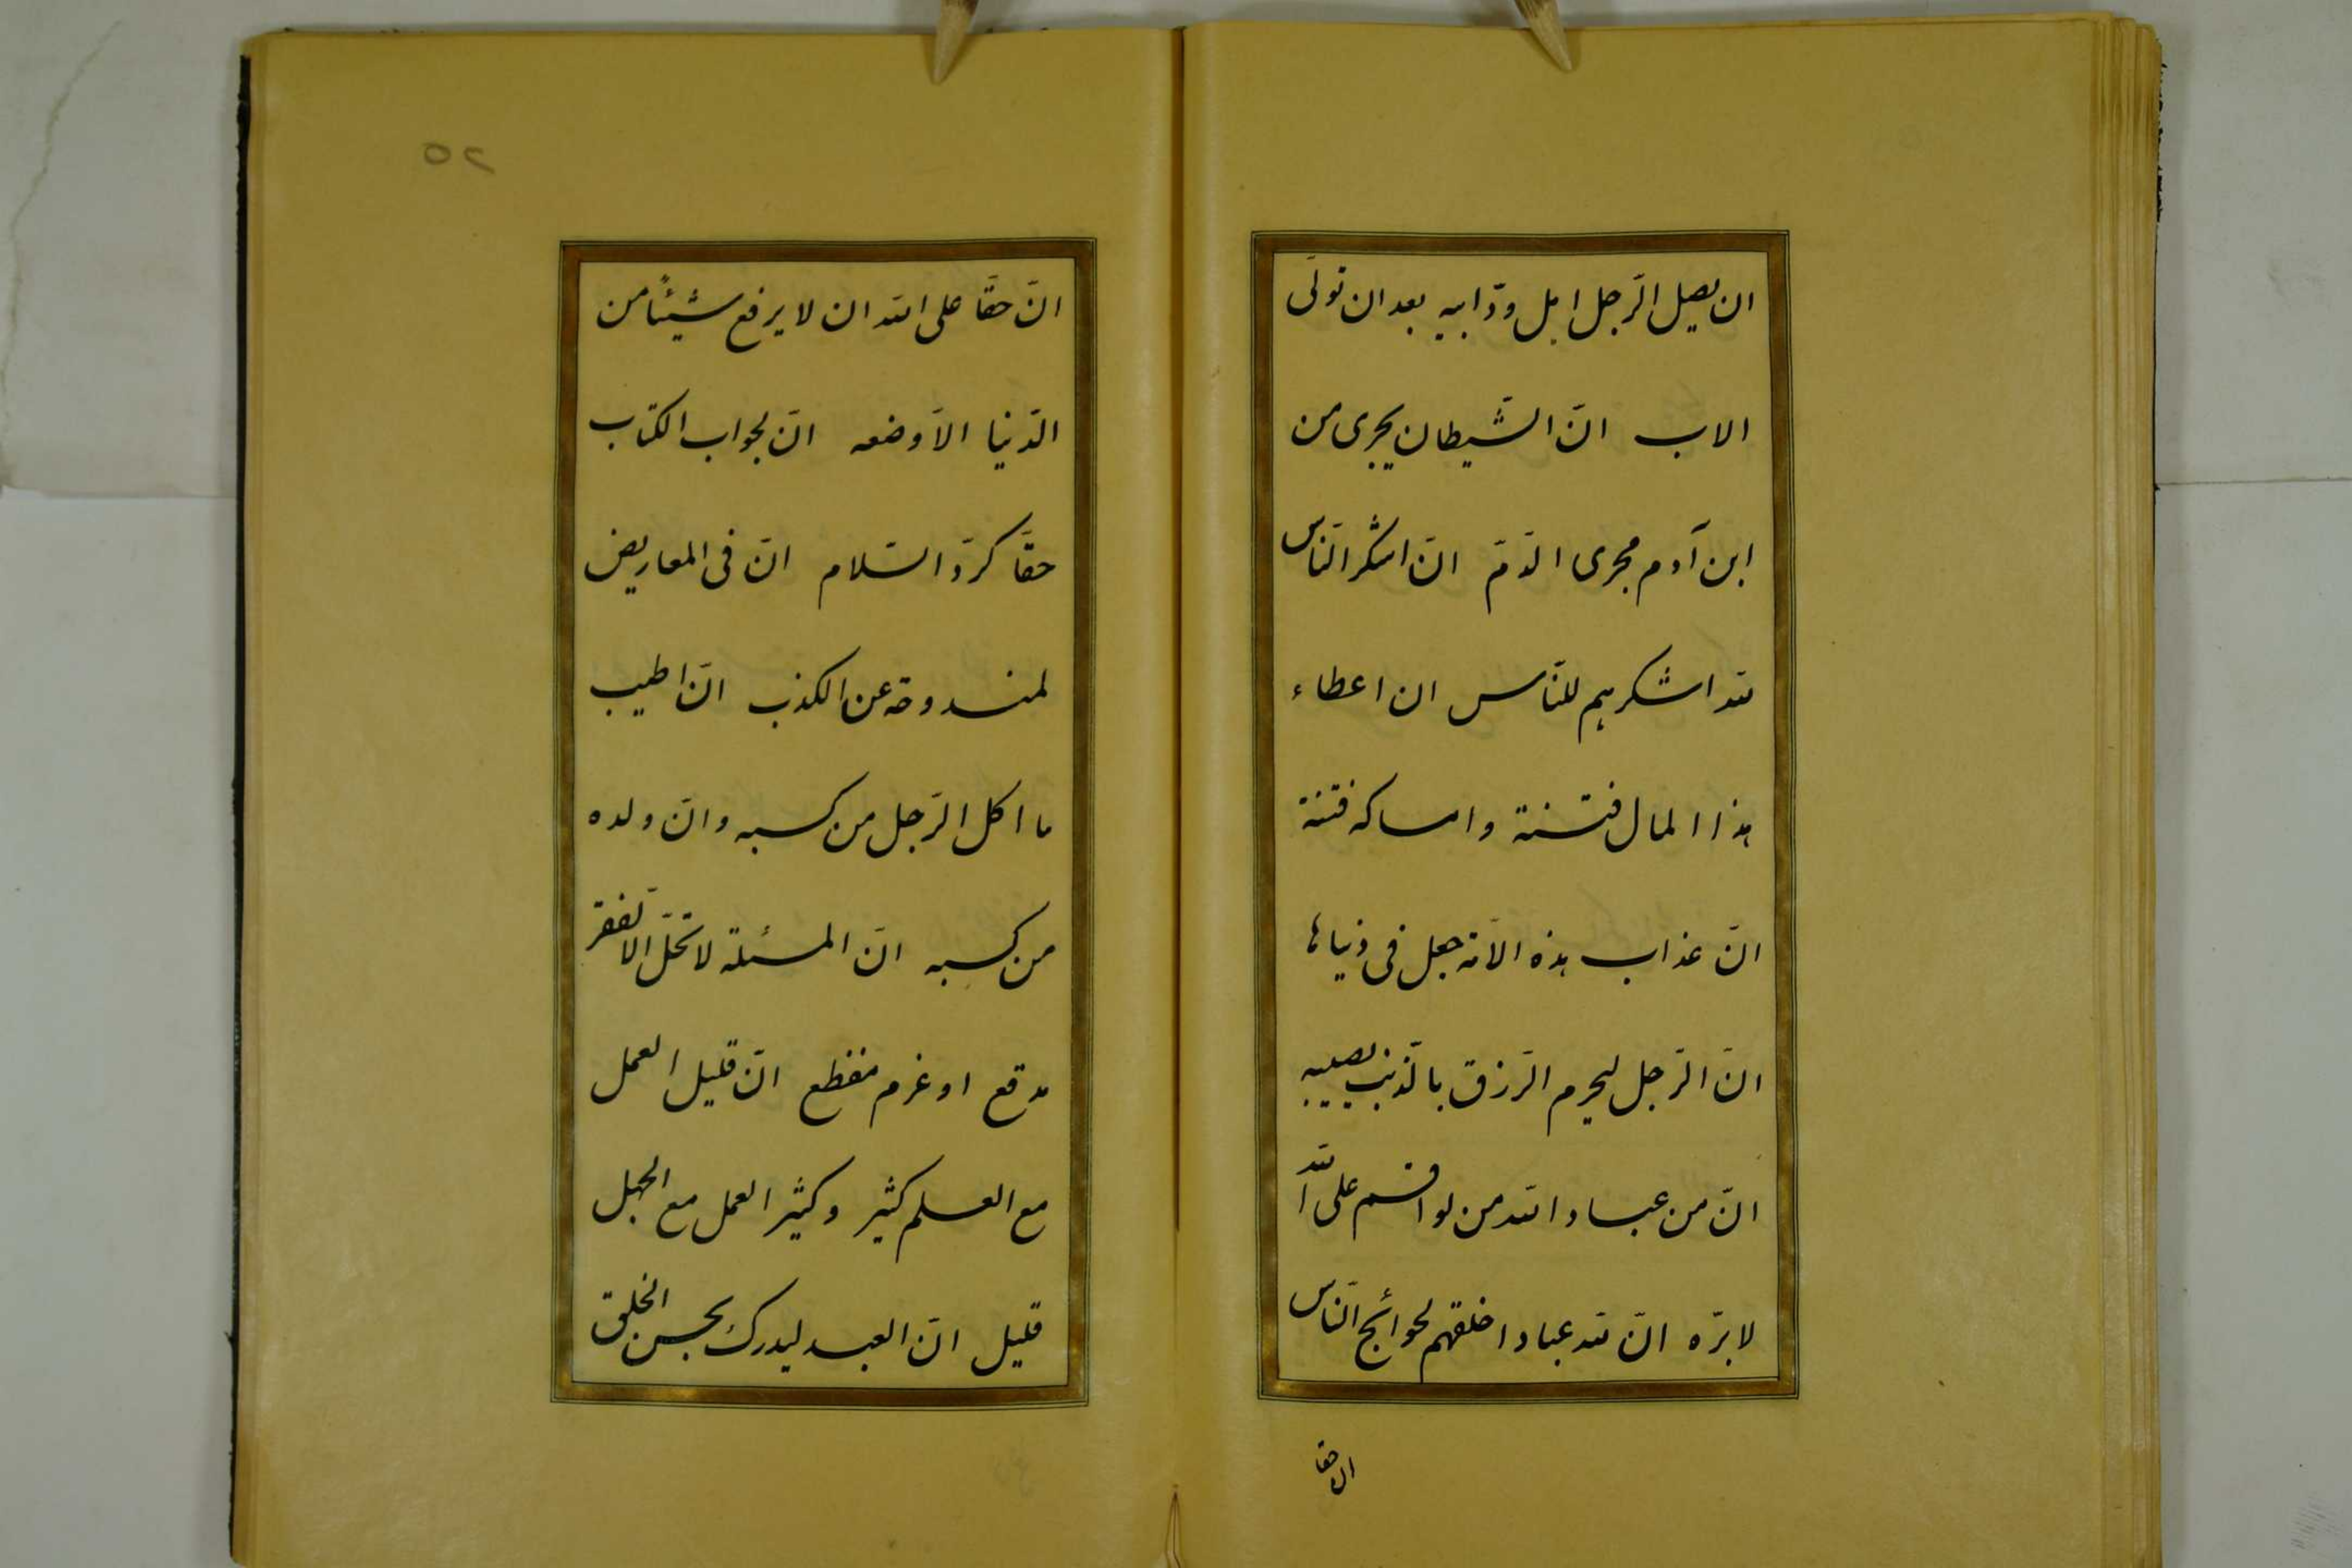 ان يصل الرّجل اهل ودّ ابيه بعد ان تولّى
الاب انّ الشّيطان يجرى من
ابن آدم مجرى الدّمّ انّ اشكر النّاس
لله اشكرهم للنّاس ان اعطاء
هذا المال فتنة وامساكه فتنة
انّ عذاب هذه الامّة جعل فى دنياها
انّ الرّجل ليحرم الرّزق بالذّنب يصيبه
انّ من عباد الله من لو اقسم على الله
لابرّه انّ لله عبادا خلقهم لحوائج النّاس
ان حقا
٥٢
انّ حقّا على الله ان لا يرفع شيئًا من
الدّنيا الاّ وضعه انّ لجواب الكتاب
حقّا كردّ السّلام انّ فى المعاريض
لمندوحة عن الكذب انّ اطيب
ما اكل الرّجل من كسبه وانّ ولده
من كسبه انّ المسئلة لا تحلّ الا لفقر
مدقع او غرم مفظع انّ قليل العمل
مع العلم كثير وكثير العمل مع الجهل
قليل انّ العبد ليدرك بحسن الخلق